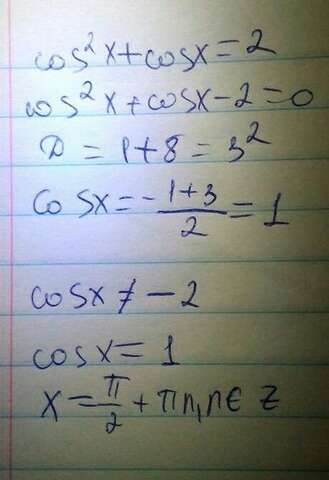 cos²x+cosx=2
cos²x+cosx-2=0
D=1+8=3²
cosx=-1+3/2=1
cosx≠-2
cosx=1
x=π/2+πn,n∈Z